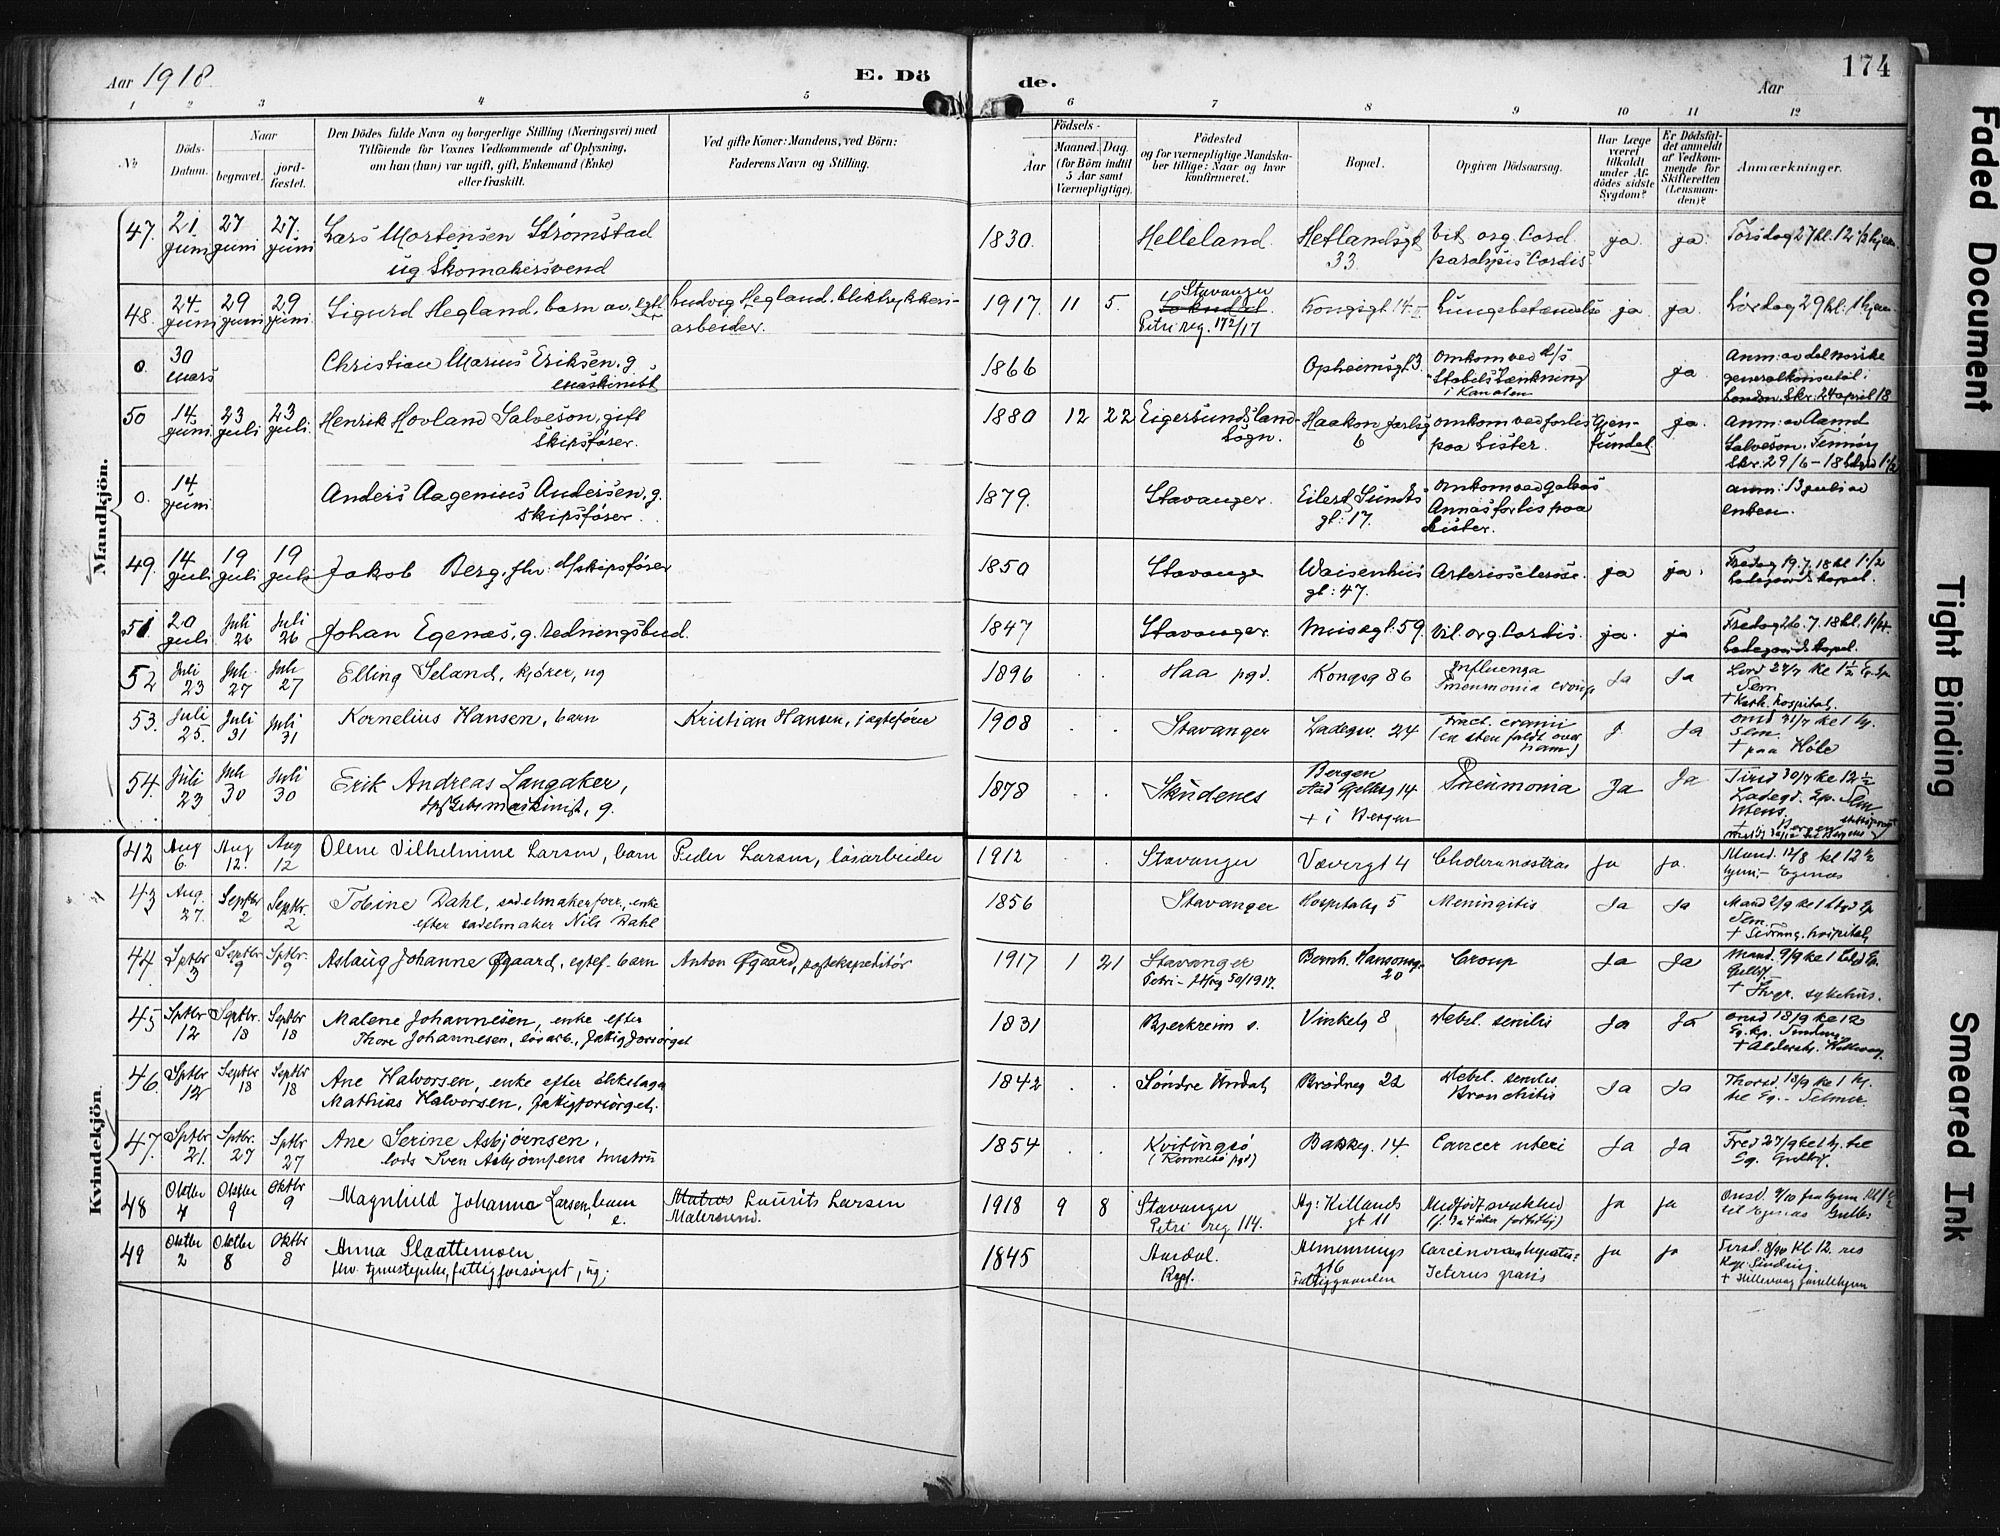 Aar 1918.
E. Dö de.
Aar
174
1 2 3 4 5 6 7 8 9 10 11 12
No
Døds-Datum.
Naar
begravet.
jord-fæstet.
Den Dödes fulde Navn og borgerlige Stilling (Næringsvei) med
Tilföiende for Voxnes Vedkommende af Oplysning,
om han (hun) var ugift, gift, Enkemand (Enke)
eller fraskilt.
Ved gifte Koner: Mandens, ved Börn:
Faderens Navn og Stilling.
Födsels-
Aar
Maaned. Dag.
(for Börn indtil
5 Aar samt
Værnepligtige).
Födested
og for værnepligtige Mandska-
ber tillige: Naar og hvor
konfirmeret.
Bopæl.
Opgiven Dödsaarsag.
Har Læge
været
tilkaldt
under Af-
dödes sidste
Sygdom?
Er Dödsfal-
det anmeldt
af Vedkom-
mende for
Skifteretten
(Lensman-
den)?
Anmærkninger.
Mandkjön.
47. 21 juni 27 juni 27. juni Lars Mortensen Strømstad
ug Skomakersvend
1830. Helleland. Hetlandsgt 33 vit. org. Cord. paralysis Cordis. ja ja Torsdag 27 kl. 12 1/2 hjem.
48. 24 juni 29 juni 29 juni. Sigurd Hegland, barn av egt. Ludvig Hegland, bliktrykkeri-
arbeider.
1917. 11 5. Stavanger Petri reg. 172/17 Kongsgt 14 Lungebetændelse ja ja. Lørdag 29 kl. 1 hjem
0. 30 mars Christian Marius Eriksen, g.
maskinist
1866 Opheimsgt. 3 omkom ved d/s "Stabils" sænkning i Kanalen ja Anm: av det norske generalkonsulat i London. Skr. 24 april 18
50 14 juni 23 juli 23 juli. Henrik Hovland Salveson, gift
Skipsfører.
1880 12 22 Eigersunds land-
sogn. Haakon Jarlsg 6 omkom ved forlis paa Lister. Gjen-
fundet ja. Anm: av Salveson,
Skr. 29/6-18
0. 14 juni Anders Aagenius Andersen, g.
skipsfører.
1879. Stavanger. Eilert Sundts gt: 17. omkom ved galeas Annas forlis paa Lister. anm: 13 juli av enken.
49. 14 juli 19 juli 19 juli Jakob Berg, fhv. d/skipsfører
1850 Stavanger Waisenhus gt: 47. Arteriosclerose. ja ja. Fredag 19.7.18 kl 1 1/2 Ladegaards kapel.
51. 20 juli Juli 26 juli 26 Johan Egenæs, g. redningsbud.
1847 Stavanger. Musegt. 59. Vit. org. Cordis. ja. ja Fredag 26.7.18 kl. Ladegaardskapel.
52 Juli 23 Juli 27 Juli 27 Elling Seland, kjører, ug
1896 . . Haa pgd. Kongsg 86 Influenza Pneumonia croup. Ja Ja Lørd 27/7 kl 1 1/2
+ Kath. hospital.
53. Juli 25. Juli 31 Juli 31 Kornelius Hansen, barn Kristian Hansen, jagtefører
1908 . . Stavanger Ladegv. 24 Fract. cranii
(en sten faldt over ham) J. Ja onsd 31/7 kl 1 hj.
+ paa Høle
54. Juli 23 Juli 30 Juli 30 Erik Andreas Langaker,
maskinist, g.
1878 . . Skudenes Bergen
+ i Bergen Pneumonia Ja Ja Tirsd 30/7 kl 12 1/2
Ladegd.
Kvindekjön
42 Aug 6. Aug 12. Aug 12 Olene Vilhelmine Larsen, barn Peder Larsen, løsarbeider
1912 . . Stavanger Vævergt 4 Cholera nostras ja ja. Mand. 12/8 kl 12 1/2
hjem - Egenæs
43 Aug. 27. Septbr 2 Septbr. 2 Tobine Dahl, sadelmakerforr., enke
efter sadelmaker Nils Dahl
1856 Stavanger Hospitalsg 5 Meningitis Ja Ja Mand 2/9 kl 1
44. Sptbr 3 Septbr 9 Sptbr. 9 Aslaug Johanne Øgaard, egtef. barn Anton Øgaard, postekspeditør
1917 1 21 Stavanger
Petri - 50/1917. Bernh. Hansensg. 20 Croup Ja Ja Mand. 9/9 kl 1
+ sykehus.
45 Sptbr 12 Septbr. 18 Septbr 18 Malene Johannesen, enke efter
Thore Johannesen, løsarb., fattigforsørget
1831 Bjerkreim s. Vinkelg 8 Debil. senilis Ja Ja onsd 18/9 kl 12
46. Sptbr 12 Septbr 18 Septbr 18 Ane Halvorsen, enke efter
Mathias Halvorsen, fattigforsørget.
1842 . . Søndre Undal Brødreg 22 Debil. senilis
Bronchitis Ja Ja Thorsd. 18/9 kl 1 hj.
47. Sptbr 21. Sptbr. 27 Sptbr 27 Ane Serine Asbjørnsen,
lods Sven Asbjørnsens hustru
1854 . . Kvitingsø
(Rennesø pgd) Bakkeg. 14. Cancer uteri Ja Ja Fred 27/9 kl 1 hj.
48 Oktbr 4 Oktbr 9 Oktbr 9 Magnhild Johanna Larsen, barn
e. Laurits Larsen
Malersvend.
1918 9 8 Stavanger
Petri reg 114. Ag: Killands gt 11 Medfødt svakhed ja ja Onsd. 9/10 fra hjem
til Egenæs
49 Oktbr 2 Oktbr 8 Oktbr 8 Anna Slaattemoen
fhv. tjenestepike, fattigforsørget, ug;
1845 Aardal
Ryf. Almennings gt 6
Fattiggaarden Carcinoma hepatis
Icterus gravis ja ja Tirsd. 8/10 kl. 12.
Faded Document
Tight Binding
Smeared Ink